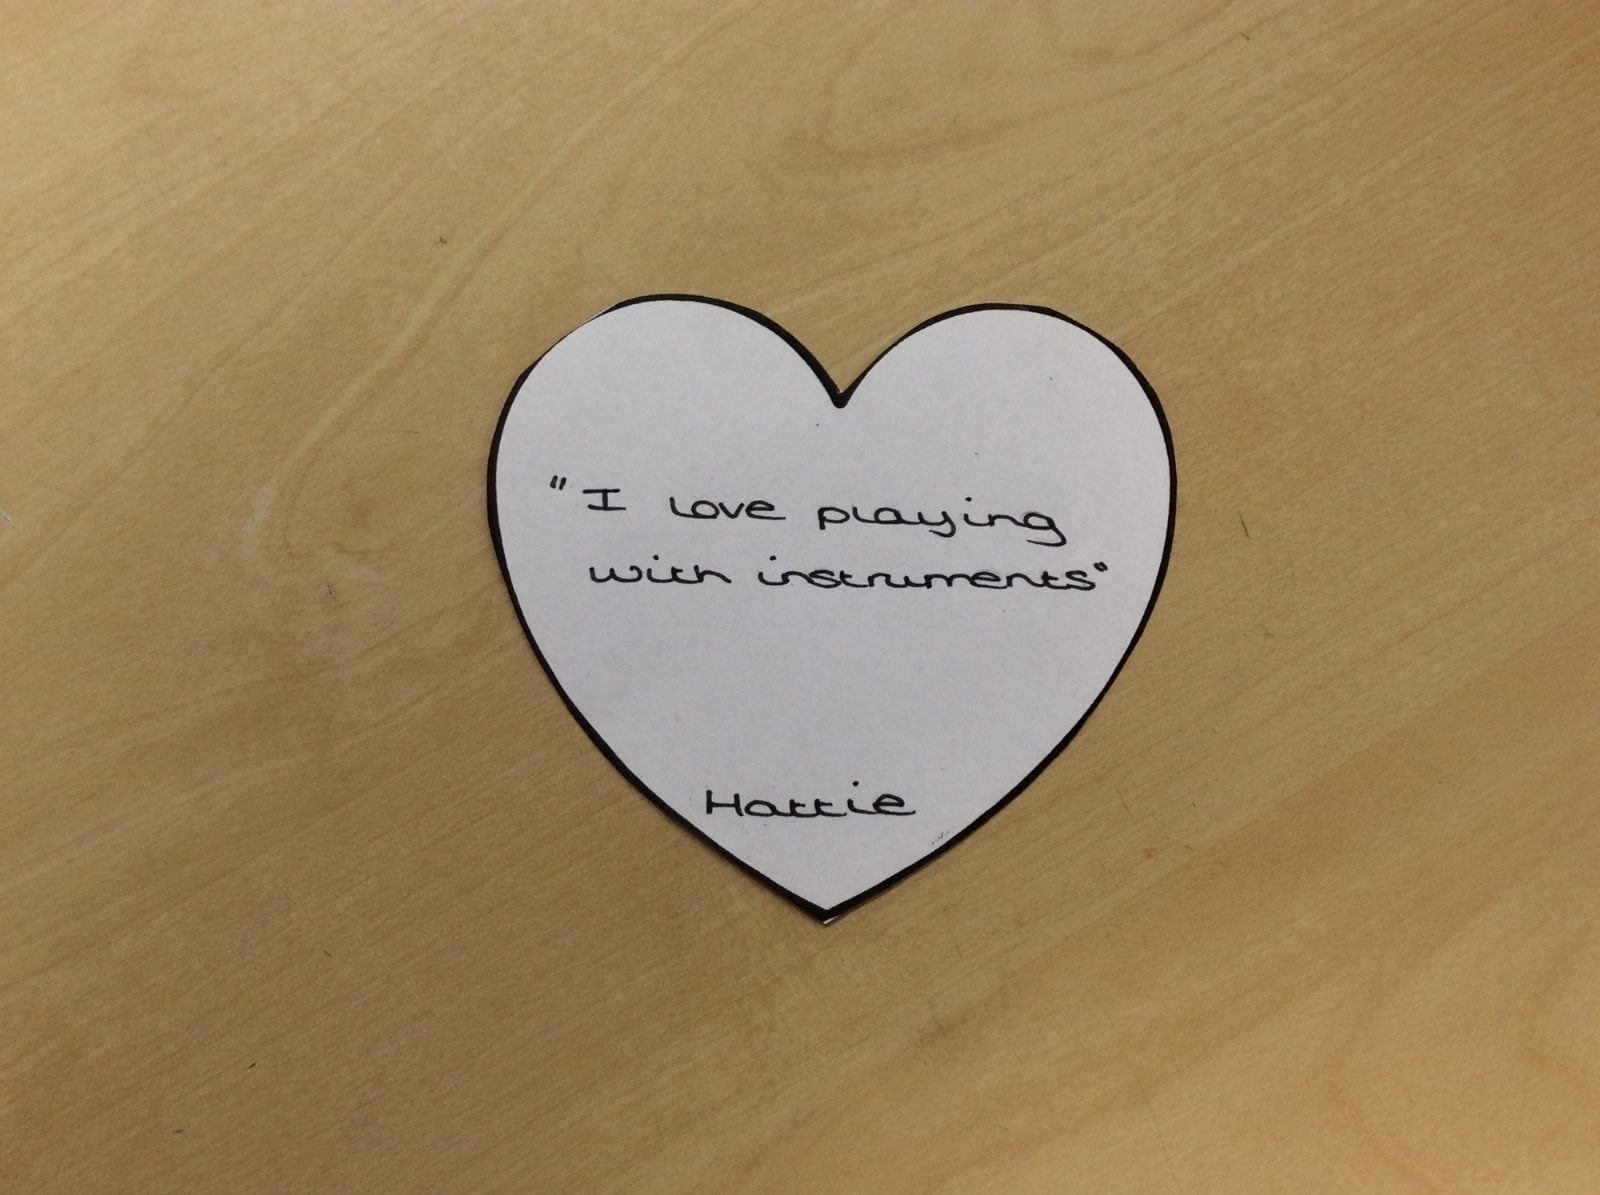 "I love playing
with instruments"
Hattie